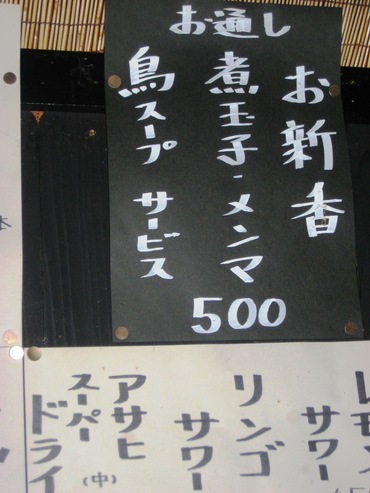 お通し
お新香
煮玉子・メンマ
鳥スープ サービス
500
サワー
リンゴ
サワー
アサヒ
スーパー
ドライ
(中)
本